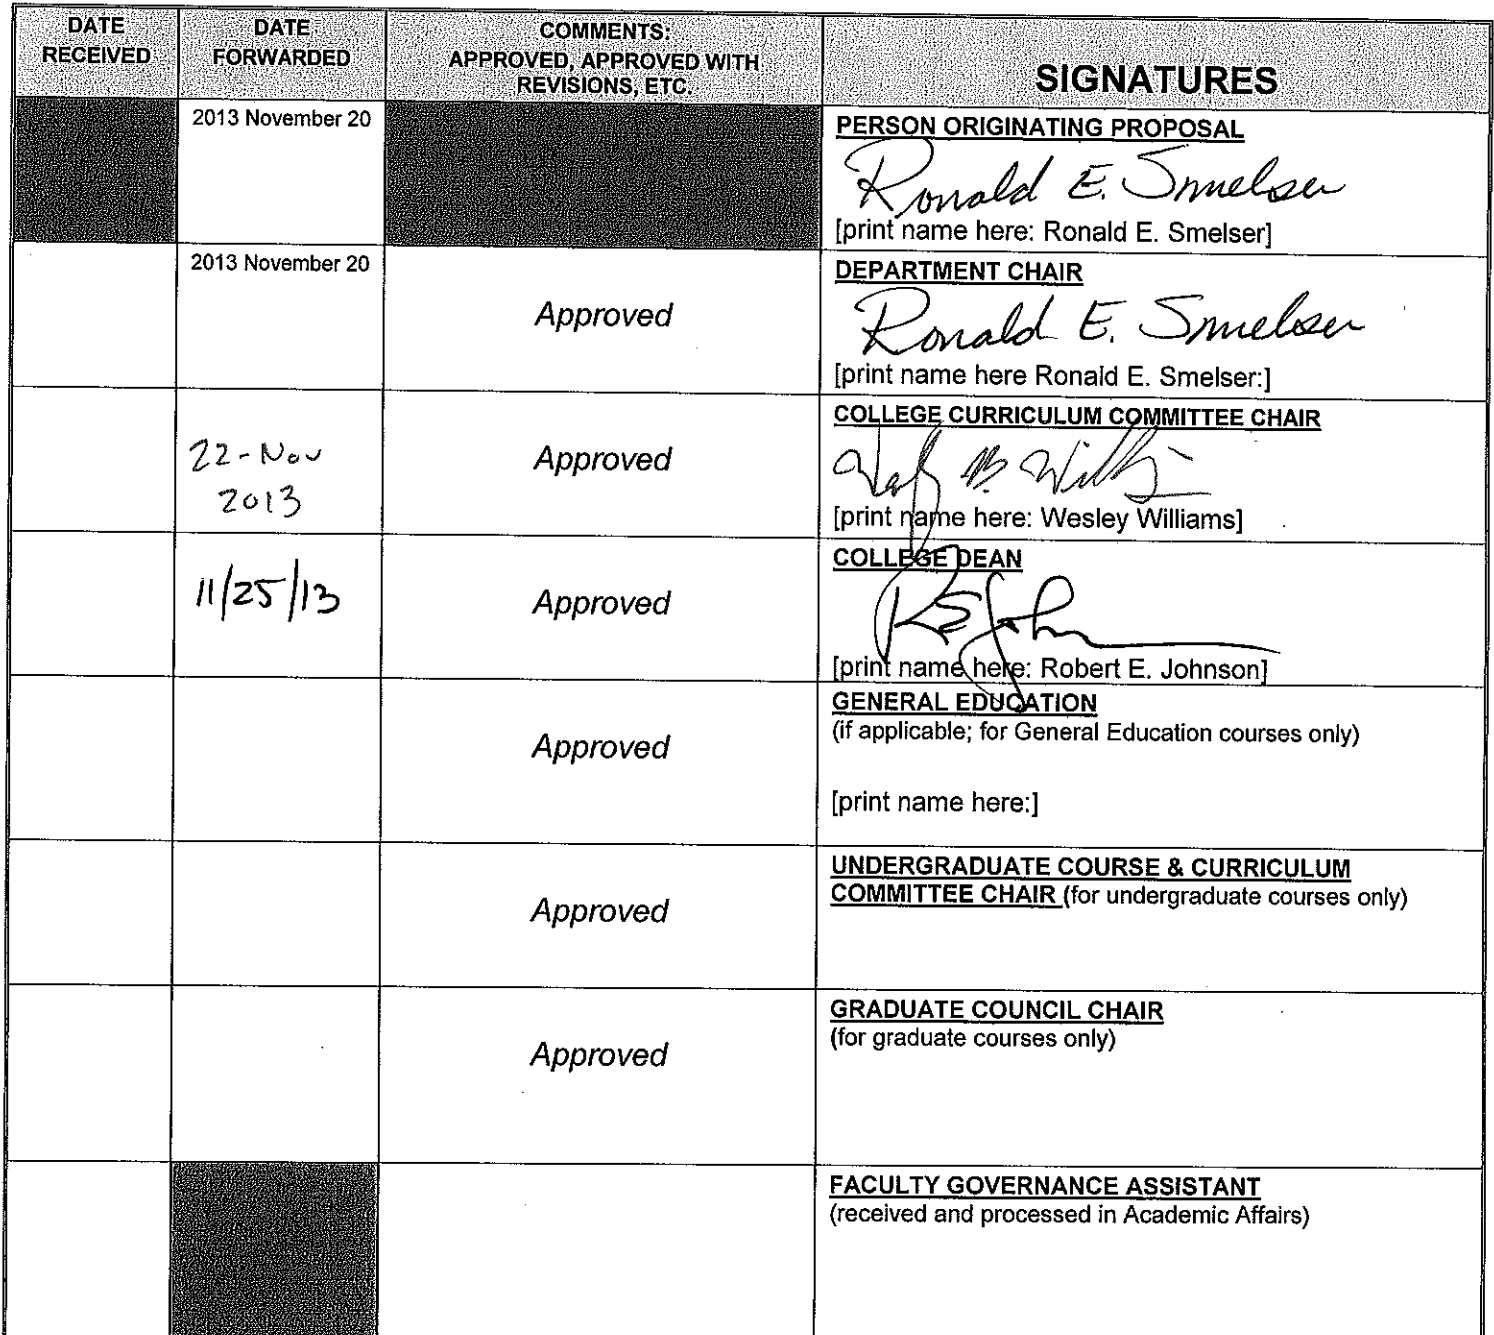 DATE
RECEIVED
DATE
FORWARDED
COMMENTS:
APPROVED, APPROVED WITH
REVISIONS, ETC.
SIGNATURES
2013 November 20
PERSON ORIGINATING PROPOSAL
Ronald E. Smelser
[print name here: Ronald E. Smelser]
2013 November 20
Approved
DEPARTMENT CHAIR
Ronald E. Smelser
[print name here Ronald E. Smelser:]
22-Nov
2013
Approved
COLLEGE CURRICULUM COMMITTEE CHAIR
[print name here: Wesley Williams]
11/25/13
Approved
COLLEGE DEAN
[print name here: Robert E. Johnson]
Approved
GENERAL EDUCATION
(if applicable; for General Education courses only)
[print name here:]
Approved
UNDERGRADUATE COURSE & CURRICULUM
COMMITTEE CHAIR (for undergraduate courses only)
Approved
GRADUATE COUNCIL CHAIR
(for graduate courses only)
FACULTY GOVERNANCE ASSISTANT
(received and processed in Academic Affairs)